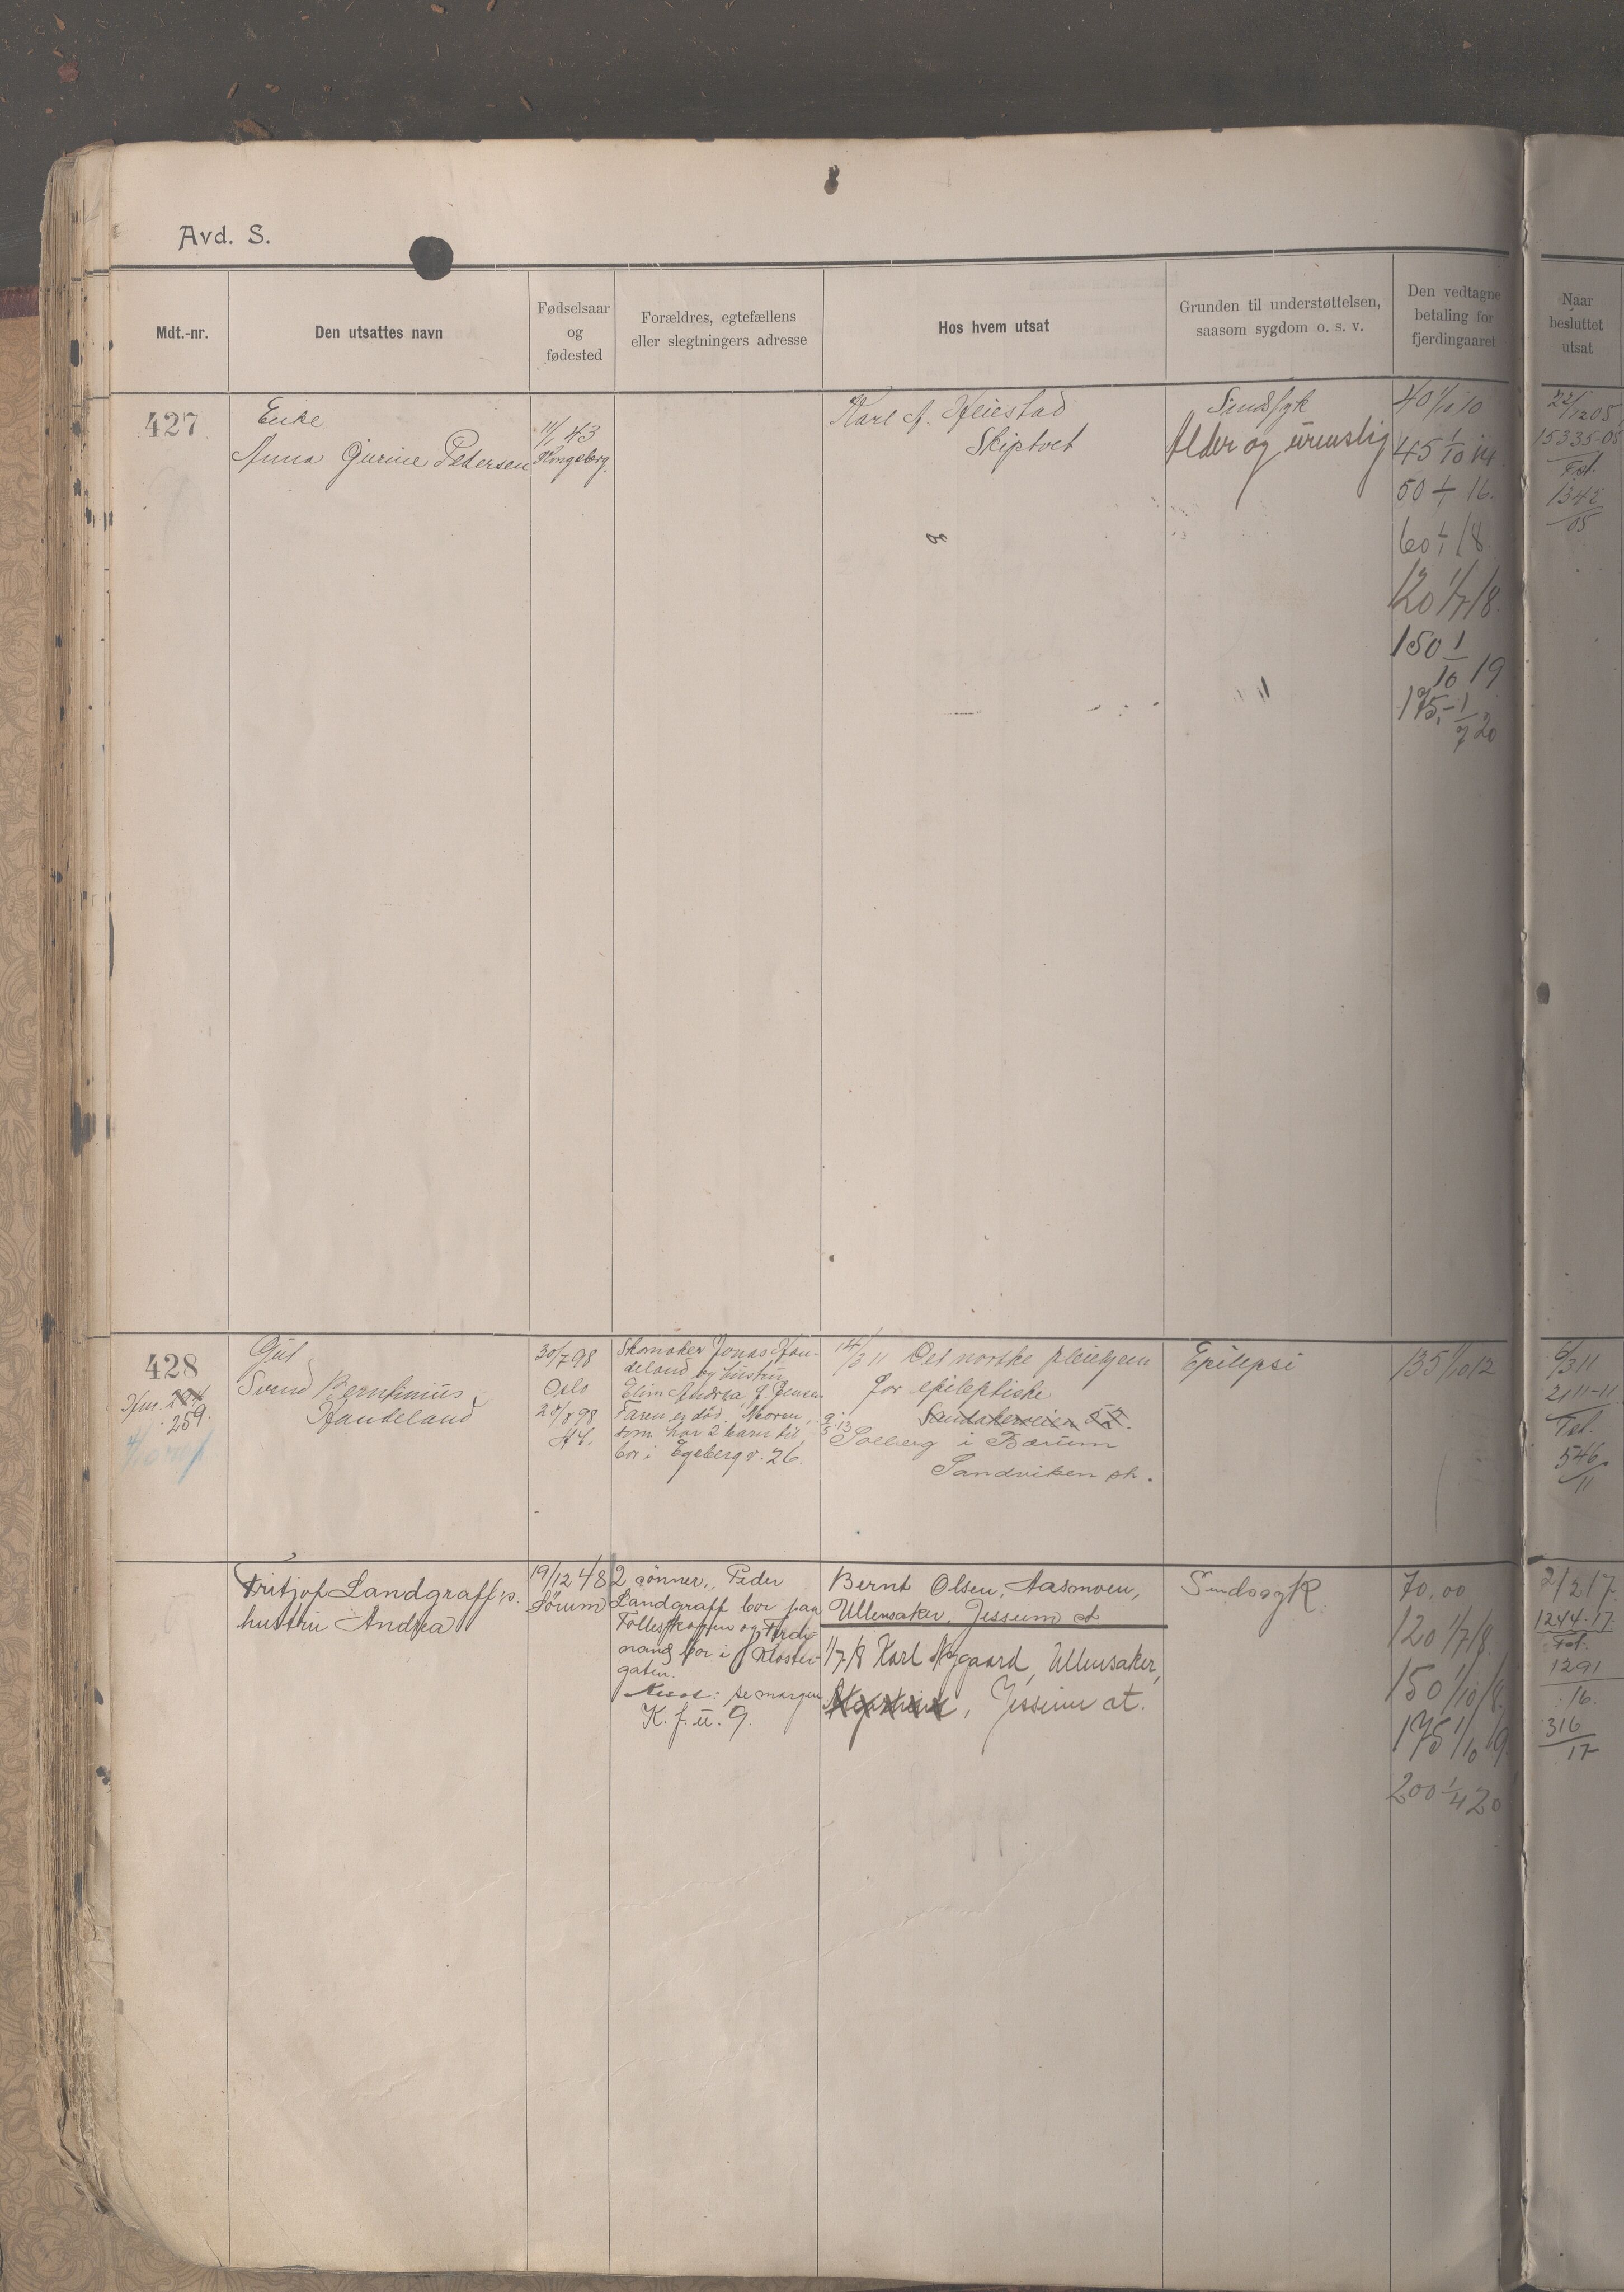 Avd. S.
Mdt.-nr.
Den utsattes navn
Fødselsaar
og
fødested
Forældres, egtefællens
eller slegtningers adresse
Hos hvem utsat
Grunden til understøttelsen,
saasom sygdom o. s. v.
Den vedtagne
betaling for
fjerdingaaret
Naar
besluttet
utsat
427
Enke
Anna Gurine Pedersen
11/1 43
Kongsberg.
Karl A. Heiestad
Skiptvet
Sindssyk
Alder og urenslig
40 1/10 10
45 1/10 14.
50 1/1 16.
60 1/1 18.
120 1/7 18.
150 1/10 19
175,- 1/7 20
22/12 05
15335-05
Fol.
1342/05
428
259.
Gut
Svend Berntinius
Handeland
30/7 98
Oslo
28/8 98
Skomaker Jonas Han-
deland og hustru
Elim Andrea f. Jensen
Faren er död. Moren,
som har 2 barn til,
bor i Egeberg v. 26.
14/3 11 Det norske pleiehjem
for epileptiske
Sandakerveien 57.
Solberg i Bærum
Sandviken st.
Epilepsi
135 1/10 12
6/3 11
2111-11
Fol.
546/11
Fritjof Landgraffs
hustru Andrea
19/12 48
Sörum
2 sönner, Peder
Landgraff bor paa
og Ferdi-
nand bor i Kloster-
gaten.
se margen
K. f. u. 9.
Bernt Olsen, Aasmoen,
Ullensaker, Jessheim st
1/7 18 Karl Nygaard, Ullensaker,
Jessheim st.
Sindssyk
70,00
120 1/7 18.
150 1/10 18.
175 1/10 19
200 1/4 20
2/2 17
1244-17.
Fol.
1291
16.
316/17